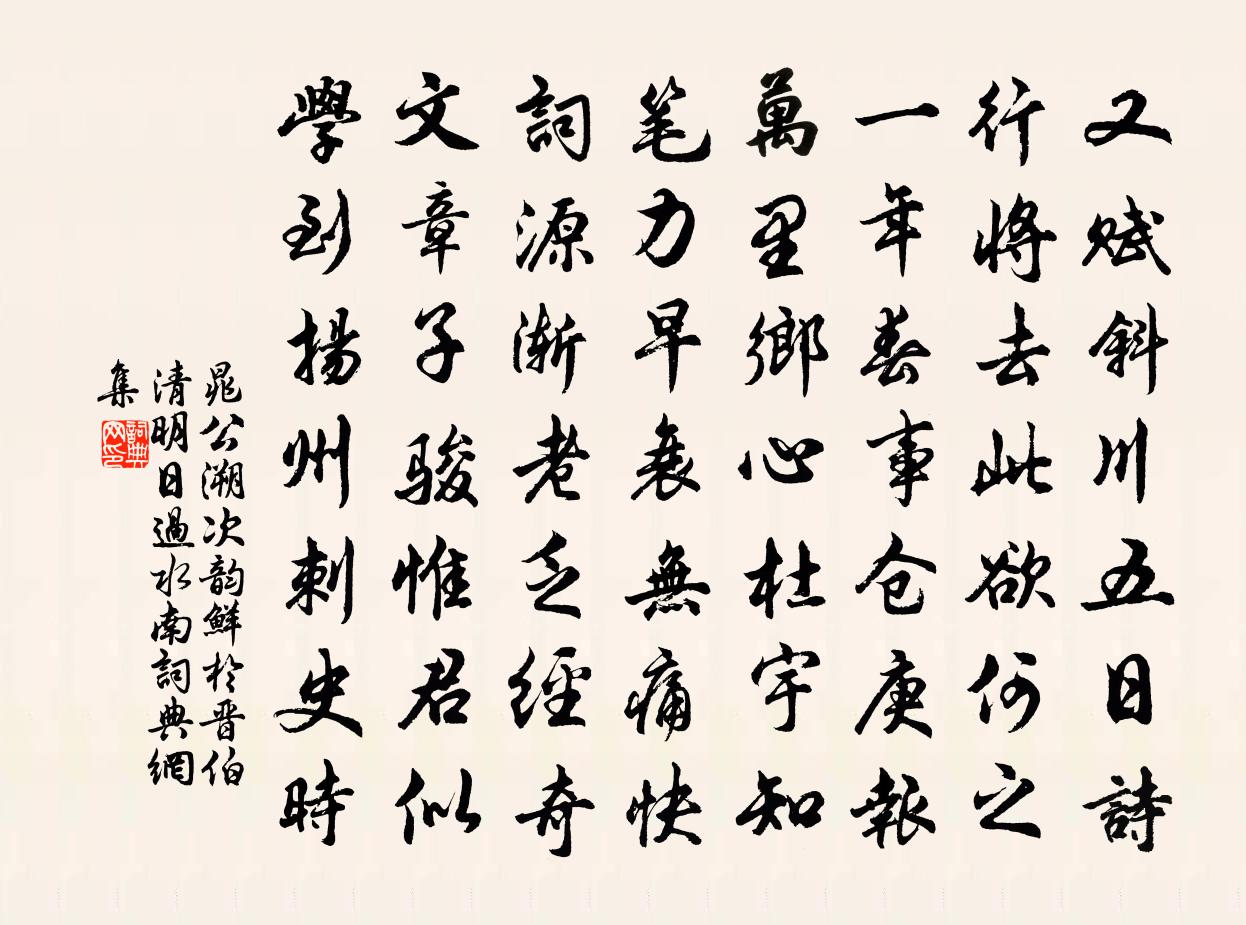 又赋斜川五日詩
行將去此欲何之
一年春事仓庚報
萬里鄉心杜宇知
笔力早衰無痛快
詞源渐老乏經奇
文章子骏惟君似
學到揚州刺史時
晁公溯次韵鮮於晋伯
清明日過水南詞典網
集
詞典
网印